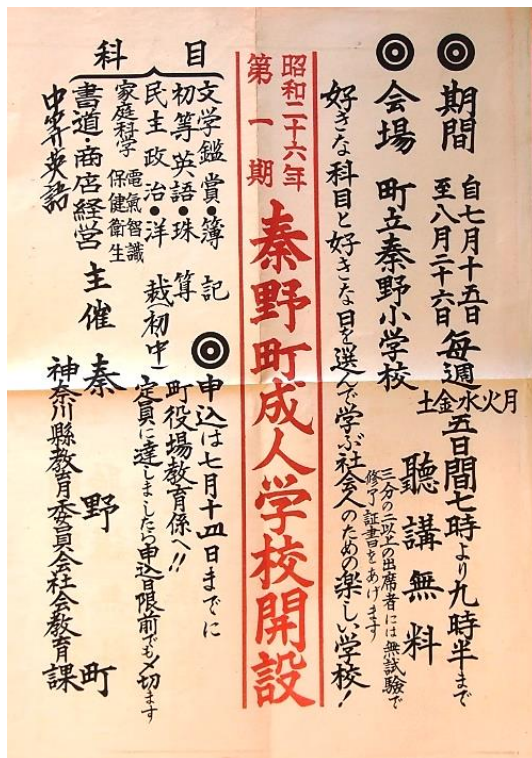 ◎期間 自七月十五日
至八月二十六日
毎週
月火水金土
五日間七時より九時半まで
◎会場 町立秦野小学校
聽講無料
三分の二以上の出席者には無試験で
修了証書をあげます
好きな科目と好きな日を選んで学ぶ社会人のための楽しい学校!
昭和二十六年
第一期
秦野町成人学校開設
科目
文学鑑賞・簿記
初等英語・珠算
民主政治・洋裁(初・中)
家庭科学
電氣智識
保健衛生
書道・商店経営
中等英語
◎申込は七月十四日までに
町役場教育係へ!!
定員に達しましたら申込日限前でも〆切ます
主催 秦野町
神奈川縣教育委員会社会教育課